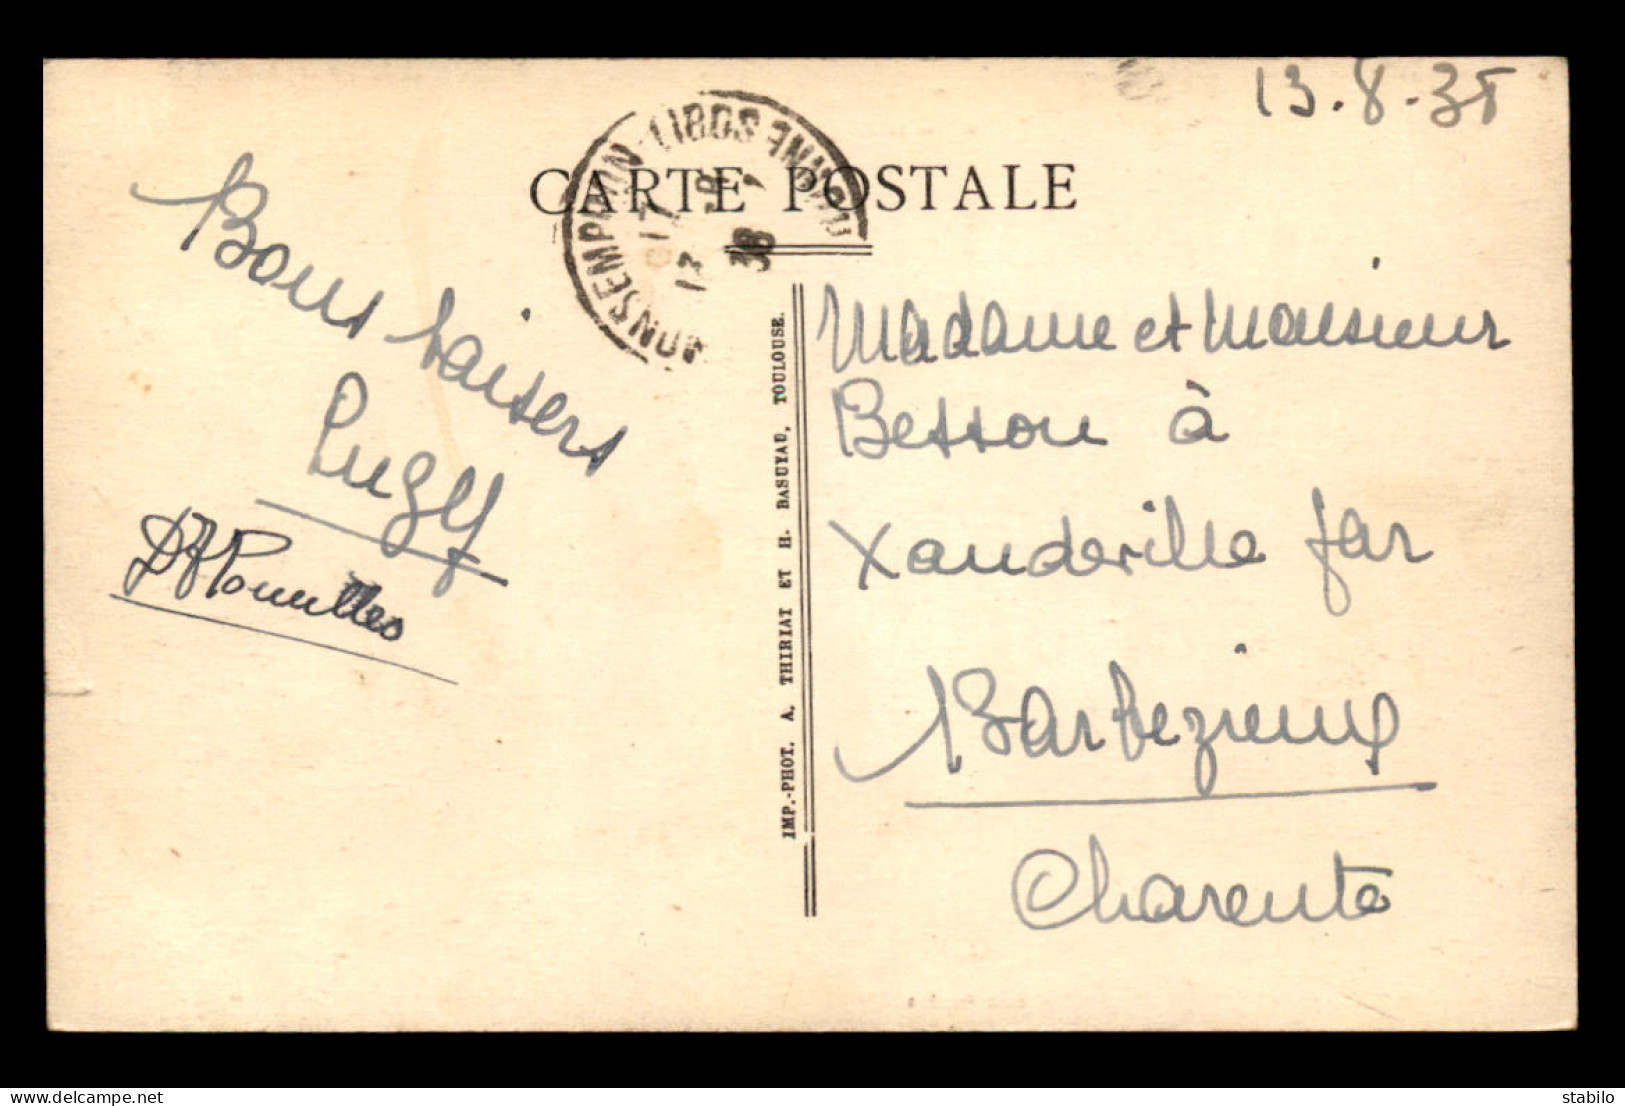 13.8.38
CARTE POSTALE
MONSEMPRON-LIBOS
17
13 - 8
38
Bons baisers
IMP.-PHOT. A. THIRIAT ET H. BASUYAU, TOULOUSE.
Madame et Monsieur
Besson à
Xandeville par
Barbezieux
Charente
delcampe.net
stabilo